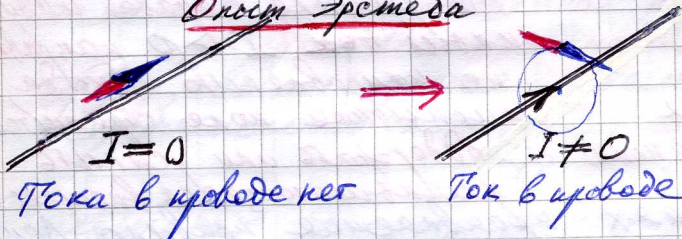 Опыт Эрстеда
I = 0
I ≠ 0
Тока в проводе нет
Ток в проводе